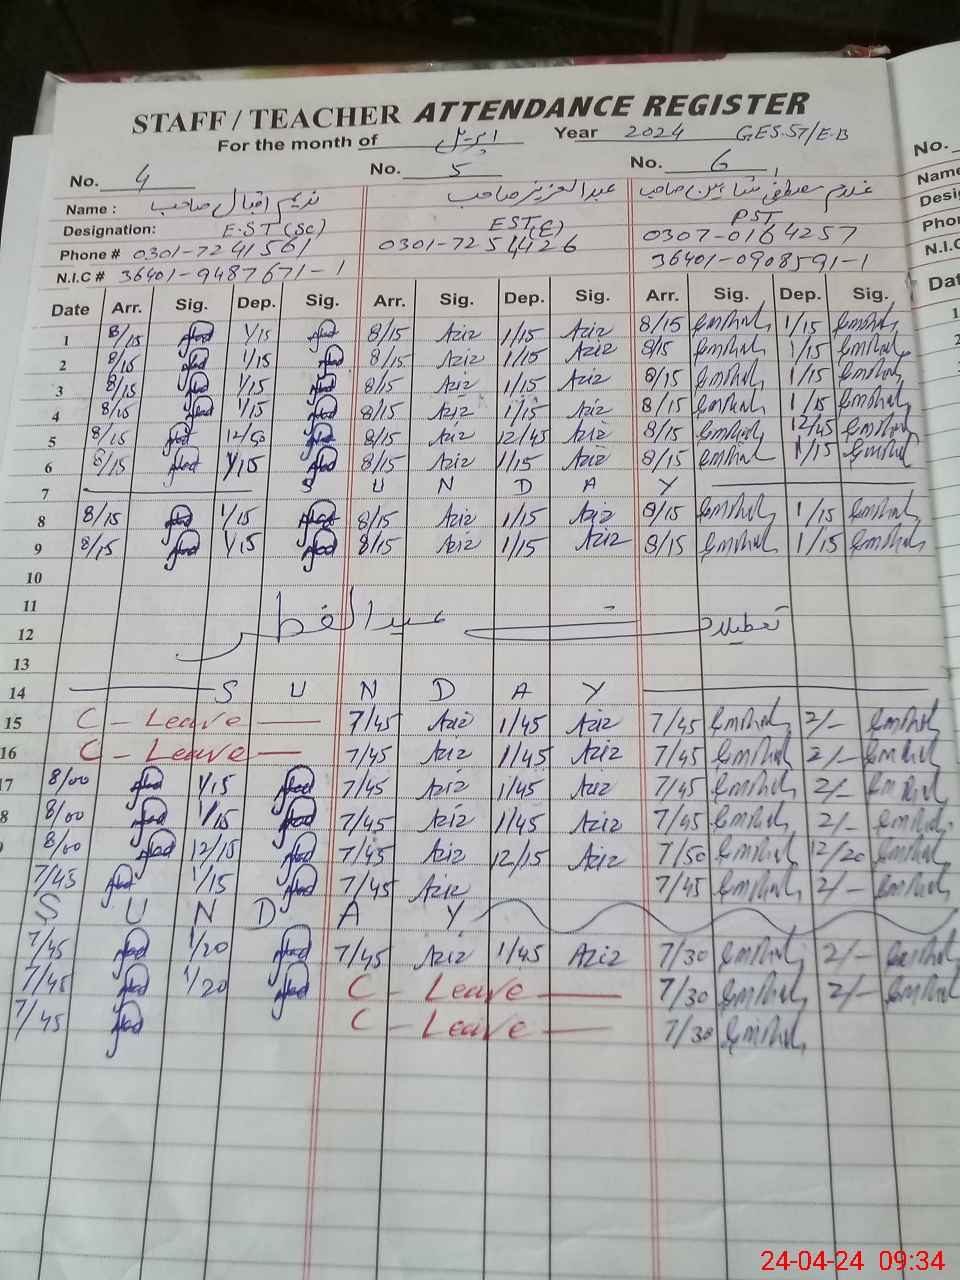 STAFF / TEACHER ATTENDANCE REGISTER
For the month of اپریل Year 2024 GES.57/E.B
No. 4 No. 5 No. 6 No.
Name : ندیم اقبال صاحب عبدالعزیز صاحب غلام مصطفی شاہین صاحب Name
Designation: E.S.T(Sc) EST(E) PST Desig
Phone # 0301-7241561 0301-7251426 0307-0164257 Phon
N.I.C # 36401-9487671-1 36401-0908591-1 N.I.C
Date Arr. Sig. Dep. Sig. Arr. Sig. Dep. Sig. Arr. Sig. Dep. Sig. Dat
1 8/15 1/15 8/15 Aziz 1/15 Aziz 8/15 1/15
2 8/15 1/15 8/15 Aziz 1/15 Aziz 8/15 1/15
3 8/15 1/15 8/15 Aziz 1/15 Aziz 8/15 1/15
4 8/15 1/15 8/15 Aziz 1/15 Aziz 8/15 1/15
5 8/15 12/50 8/15 Aziz 12/45 Aziz 8/15 12/45
6 8/15 1/15 8/15 Aziz 1/15 Aziz 8/15 1/15
7 S U N D A Y
8 8/15 1/15 8/15 Aziz 1/15 Aziz 8/15 1/15
9 8/15 1/15 8/15 Aziz 1/15 Aziz 8/15 1/15
10
11
12 تعطیلات عیدالفطر
13
14 S U N D A Y
15 C - Leave 7/45 Aziz 1/45 Aziz 7/45 2/-
16 C - Leave 7/45 Aziz 1/45 Aziz 7/45 2/-
17 8/00 1/15 7/45 Aziz 1/45 Aziz 7/45 2/-
8 8/00 1/15 7/45 Aziz 1/45 Aziz 7/45 2/-
8/00 12/15 7/45 Aziz 12/15 Aziz 7/50 12/20
7/45 1/15 7/45 Aziz 7/45 2/-
S U N D A Y
7/45 1/20 7/45 Aziz 1/45 Aziz 7/30 2/-
7/45 1/20 C - Leave 7/30 2/-
7/45 C - Leave 7/30
24-04-24 09:34